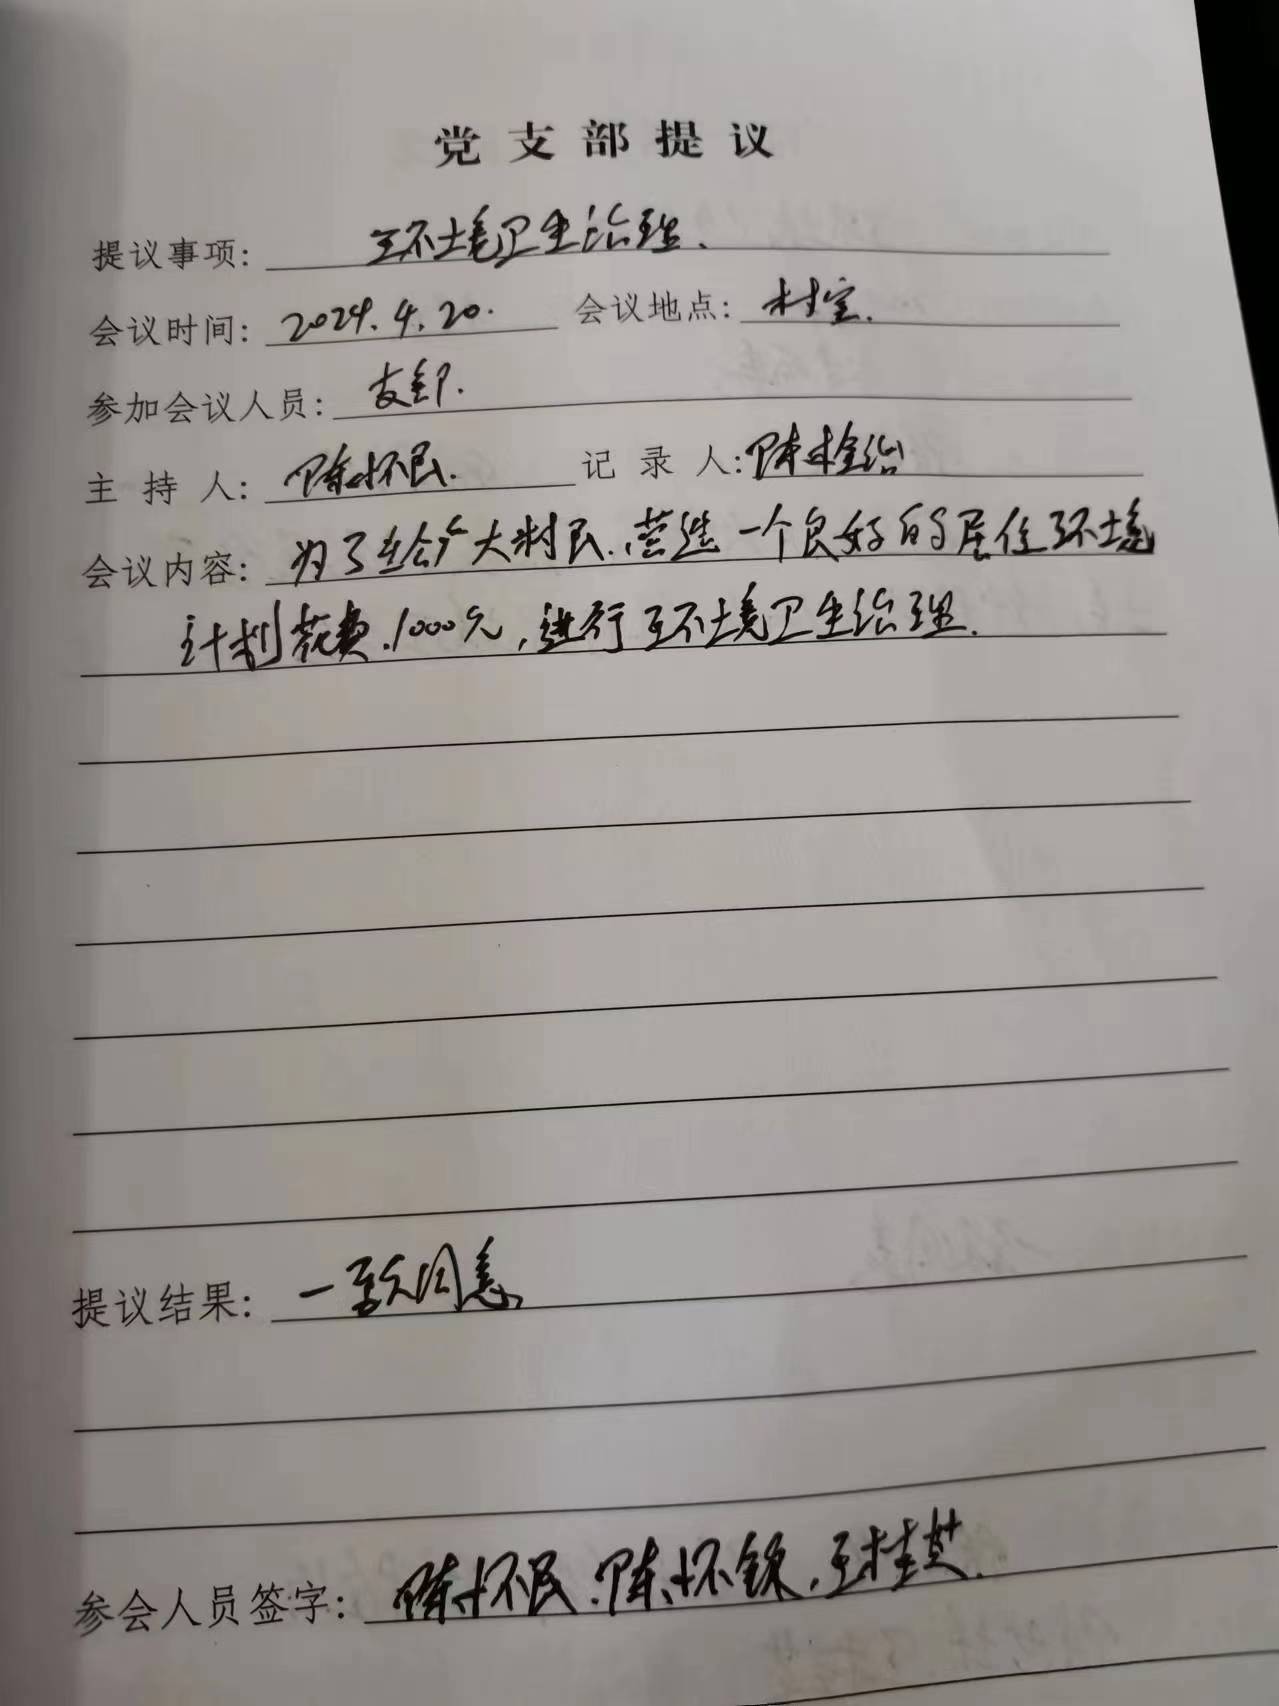 党支部提议
提议事项: 环境卫生治理.
会议时间: 2024.4.20. 会议地点: 村室.
参加会议人员: 支部.
主持人: 陈怀民. 记录人: 陈栓治
会议内容: 为了给广大村民.营造一个良好的居住环境
计划花费.1000元,进行环境卫生治理.
提议结果: 一致同意
参会人员签字: 陈怀民.陈怀锦.王桂芝.